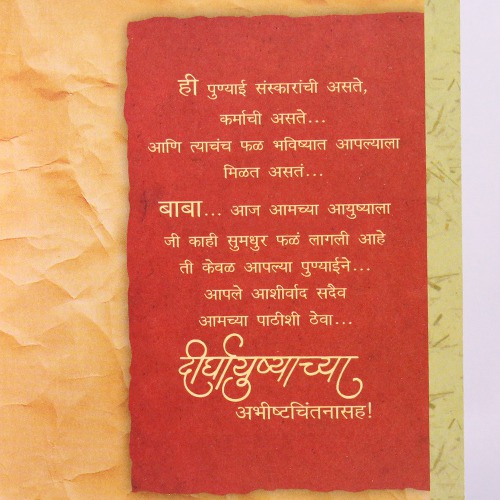 ही पुण्याई संस्कारांची असते,
कर्माची असते...
आणि त्याचंच फळ भविष्यात आपल्याला
मिळत असतं...
बाबा... आज आमच्या आयुष्याला
जी काही सुमधुर फळं लागली आहे
ती केवळ आपल्या पुण्याईने...
आपले आशीर्वाद सदैव
आमच्या पाठीशी ठेवा...
दीर्घायुष्याच्या
अभीष्टचिंतनासह!